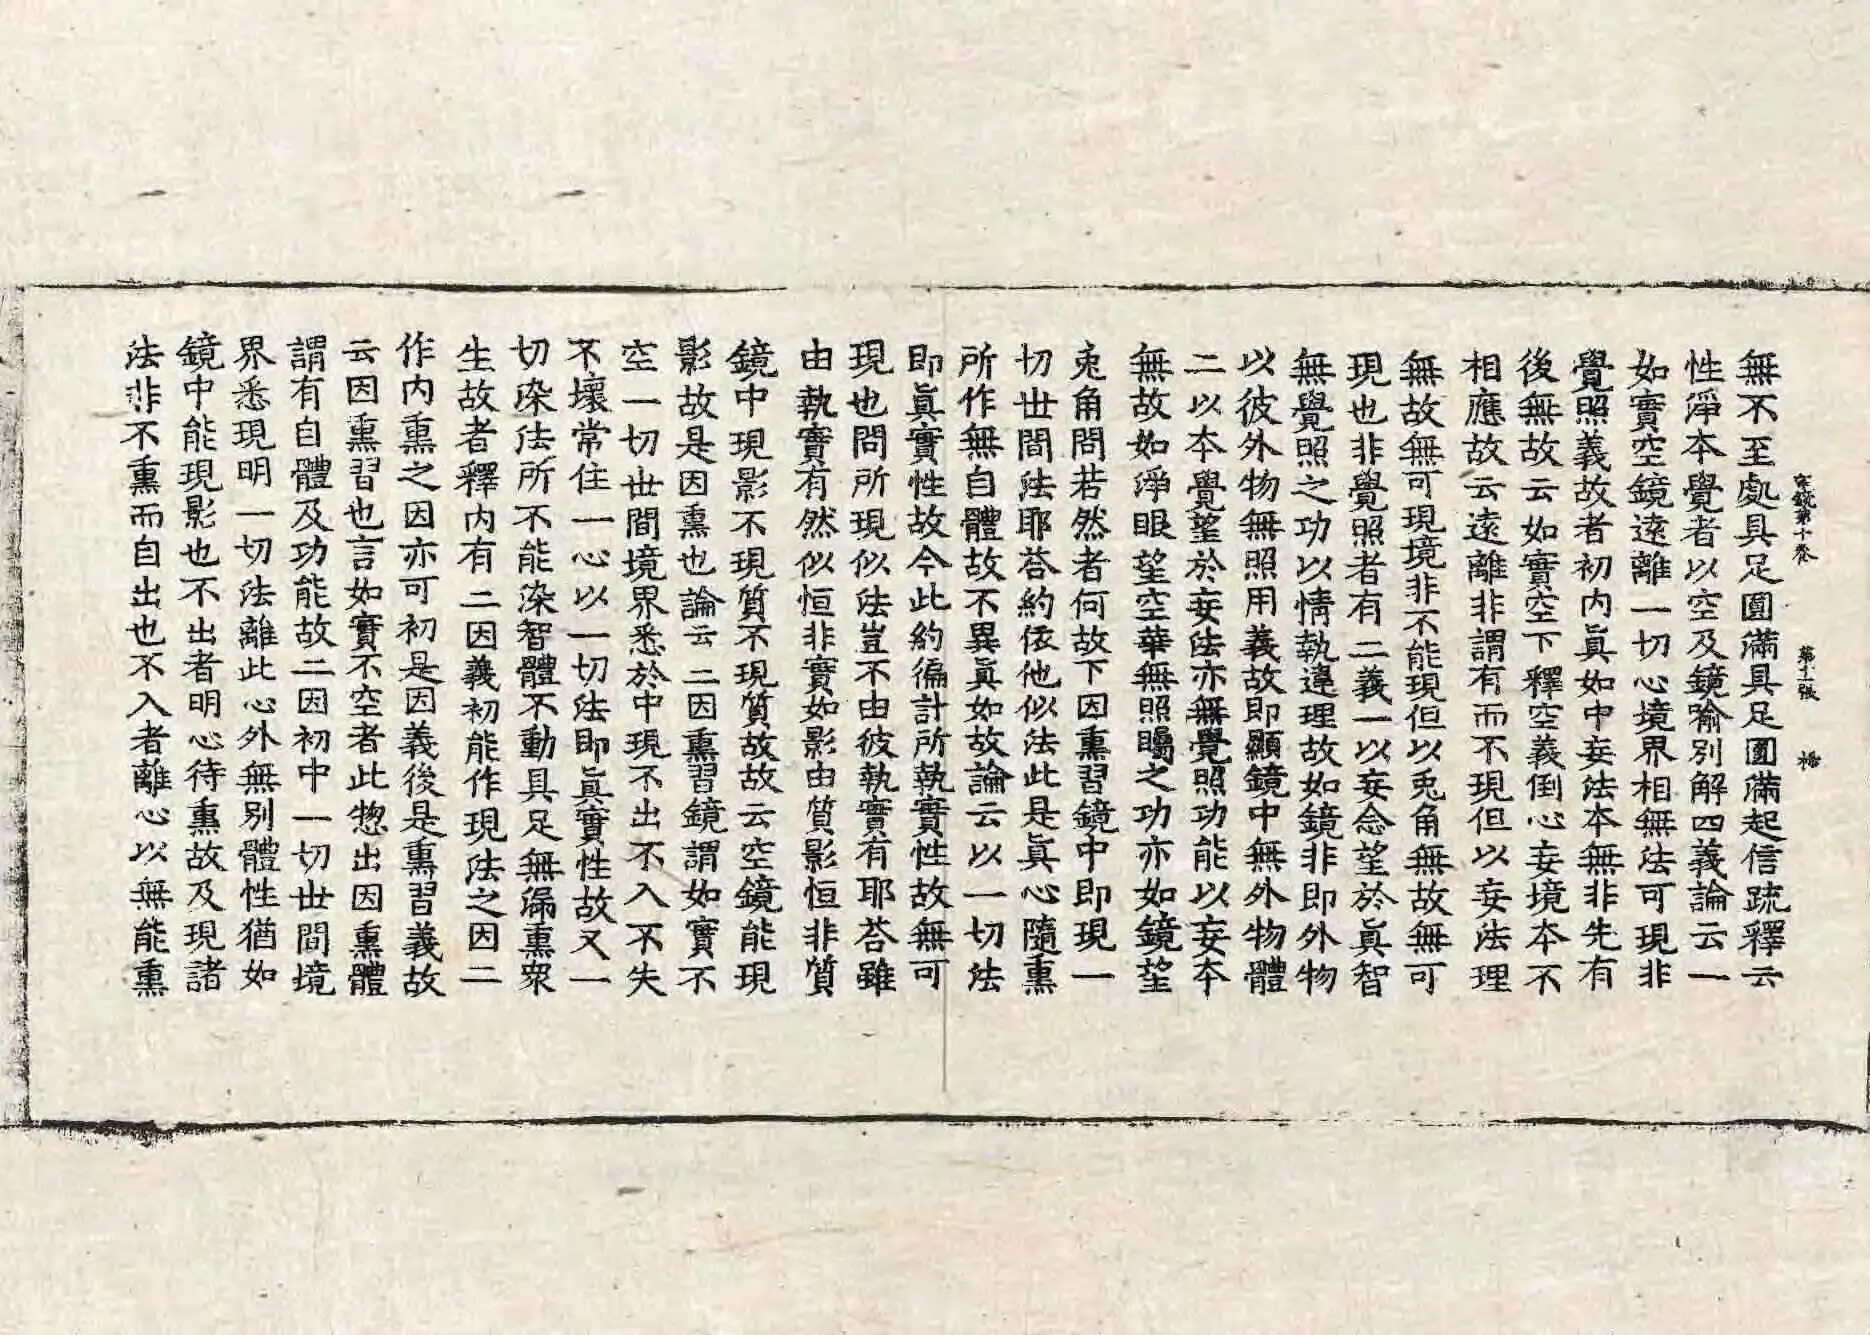 宗鏡第十卷 第十二張
無不至處具足圓滿具足圓滿起信疏釋云
性淨本覺者以空及鏡喻別解四義論云一
如實空鏡遠離一切心境界相無法可現非
覺照義故者初內眞如中妄法本無非先有
後無故云如實空下釋空義倒心妄境本不
相應故云遠離非謂有而不現但以妄法理
無故無可現境非不能現但以兎角無故無可
現也非覺照者有二義一以妄念望於眞智
無覺照之功以情執違理故如鏡非即外物
以彼外物無照用義故即顯鏡中無外物體
二以本覺望於妄法亦無覺照功能以妄本
無故如淨眼望空華無照矚之功亦如鏡望
兎角問若然者何故下因熏習鏡中即現一
切世間法耶荅約依他似法此是眞心隨熏
所作無自體故不異眞如故論云以一切法
即眞實性故今此約徧計所執實性故無可
現也問所現似法豈不由彼執實有耶荅雖
由執實有然似恒非實如影由質影恒非質
鏡中現影不現質不現質故故云空鏡能現
影故是因熏也論云二因熏習鏡謂如實不
空一切世間境界悉於中現不出不入不失
不壞常住一心以一切法即眞實性故又一
切染法所不能染智體不動具足無漏熏衆
生故者釋內有二因義初能作現法之因二
作內熏之因亦可初是因義後是熏習義故
云因熏習也言如實不空者此惣出因熏體
謂有自體及功能故二因初中一切世間境
界悉現明一切法離此心外無別體性猶如
鏡中能現影也不出者明心待熏故及現諸
法非不熏而自出也不入者離心以無能熏